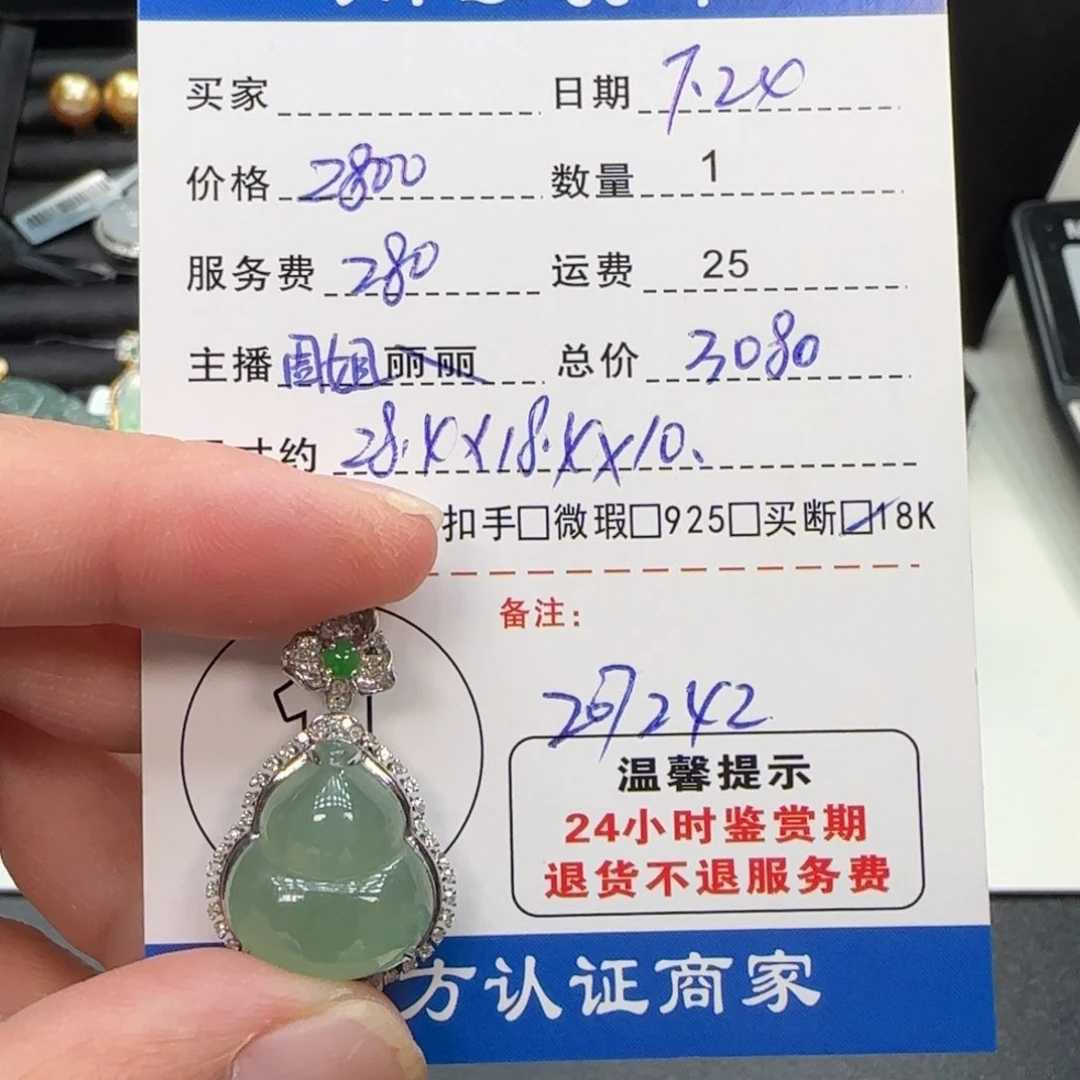 买家 日期 7.24
价格 2800 数量 1
服务费 280 运费 25
主播 周姐 丽丽 总价 3080
寸约 28.4X18.4X10.
扣手□微瑕□925□买断☑18K
备注：
温馨提示
24小时鉴赏期
退货不退服务费
方认证商家